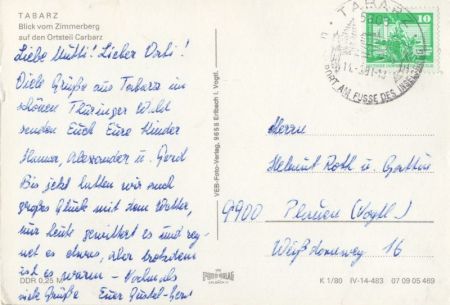 TABARZ
Blick vom Zimmerberg
auf den Ortsteil Carbarz
Liebe Mutti! Lieber Orbi!
Viele Grüße aus Tabarz im
schönen Thüringer Wald
senden Euch Eure Kinder
Hannar, Alexander u. Gerd
Bis jetzt hatten wir auch
großes Glück mit dem Wetter,
nur heute gewittert es und reg-
net es etwas, aber trotzdem
ist es warm - Nochmals
viele Grüße Euer Güstel-Gerd
DDR 0,25 M
VEB-Foto-Verlag, 9658 Erlbach i. Vogtl.
FOTO-VERLAG
ERLBACH
TABARZ
ORT AM FUSSE DES INSELSBERGES
10
Herrn
Helmut Roth u. Gattin
9900 Plauen (Vogtl.)
Weißdornweg 16
K 1/80 IV-14-483 07 09 05 469